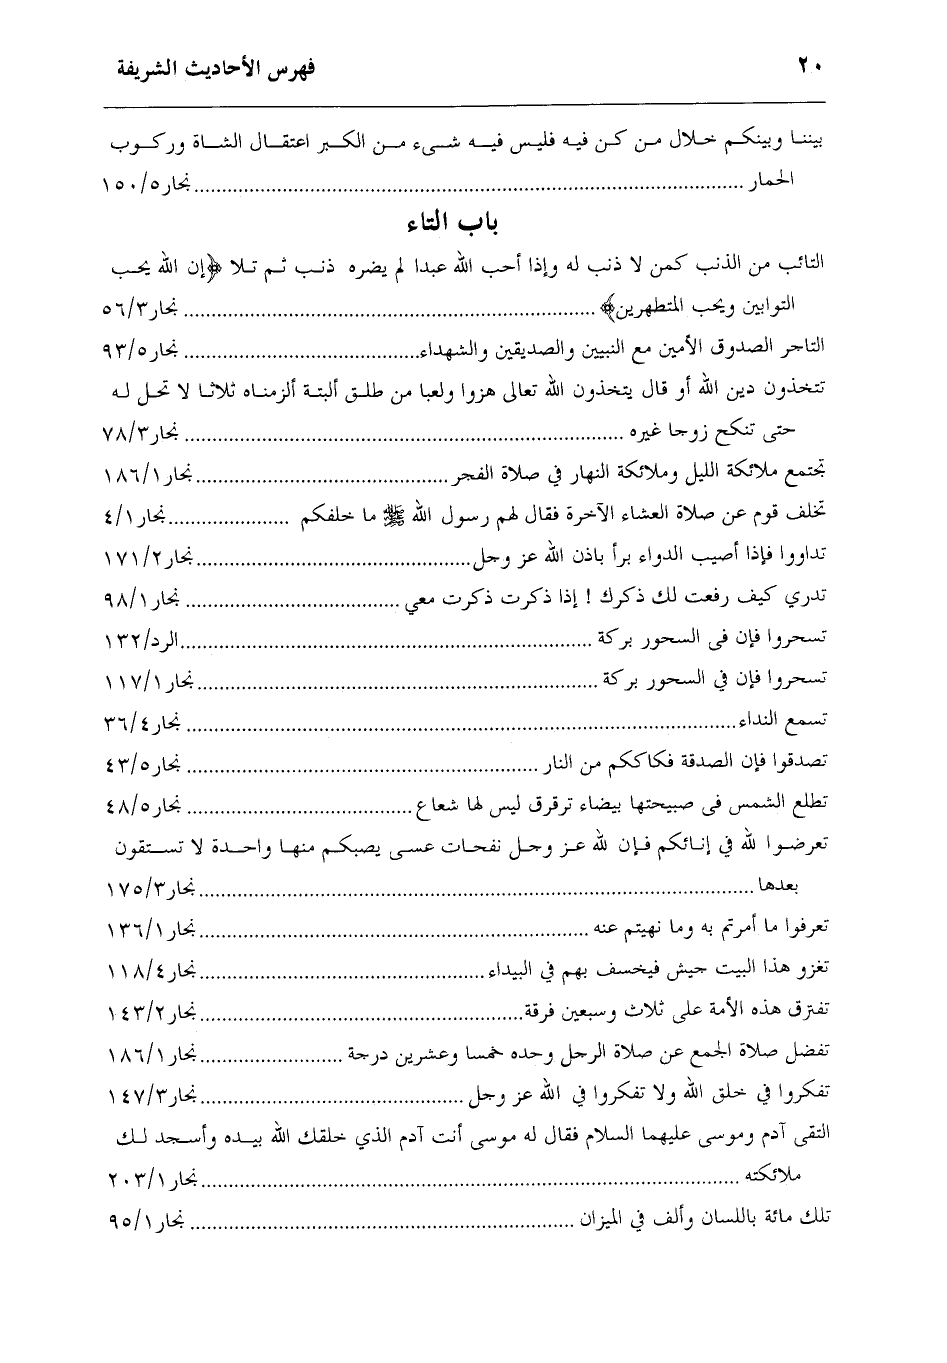 ٢٠ فهرس الأحاديث الشريفة
بيننا وبينكم خلال من كن فيه فليس فيه شىء من الكبر اعتقال الشاة وركوب
الحمار ........ نجار٥/ ١٥٠
باب التاء
التائب من الذنب كمن لا ذنب له وإذا أحب الله عبدا لم يضره ذنب ثم تلا ﴿إن الله يحب
التوابين ويحب المتطهرين﴾ ........ نجار٥٦/٣
التاجر الصدوق الأمين مع النبيين والصديقين والشهداء ........ نجار٩٣/٥
تتخذون دين الله أو قال يتخذون الله تعالى هزوا ولعبا من طلق ألبتة ألزمناه ثلاثا لا تحل له
حتى تنكح زوجا غيره ........ نجار٧٨/٣
تجتمع ملائكة الليل وملائكة النهار في صلاة الفجر ........ نجار١٨٦/١
تخلف قوم عن صلاة العشاء الآخرة فقال لهم رسول الله ﷺ ما خلفكم ........ نجار٤/١
تداووا فإذا أصيب الدواء برأ باذن الله عز وجل ........ نجار١٧١/٢
تدري كيف رفعت لك ذكرك ! إذا ذكرت ذكرت معي ........ نجار٩٨/١
تسحروا فإن فى السحور بركة ........ الرد/١٣٢
تسحروا فإن في السحور بركة ........ نجار١١٧/١
تسمع النداء ........ نجار٣٦/٤
تصدقوا فإن الصدقة فكاككم من النار ........ نجار٤٣/٥
تطلع الشمس فى صبيحتها بيضاء ترقرق ليس لها شعاع ........ نجار٤٨/٥
تعرضوا لله في إنائكم فإن لله عز وجل نفحات عسى يصبكم منها واحدة لا تستقون
بعدها ........ نجار١٧٥/٣
تعرفوا ما أمرتم به وما نهيتم عنه ........ نجار١٣٦/١
تغزو هذا البيت جيش فيخسف بهم في البيداء ........ نجار١١٨/٤
تفترق هذه الأمة على ثلاث وسبعين فرقة ........ نجار١٤٣/٢
تفضل صلاة الجمع عن صلاة الرجل وحده خمسا وعشرين درجة ........ نجار١٨٦/١
تفكروا في خلق الله ولا تفكروا في الله عز وجل ........ نجار١٤٧/٣
التقى آدم وموسى عليهما السلام فقال له موسى أنت آدم الذي خلقك الله بيده وأسجد لك
ملائكته ........ نجار٢٠٣/١
تلك مائة باللسان وألف في الميزان ........ نجار٩٥/١